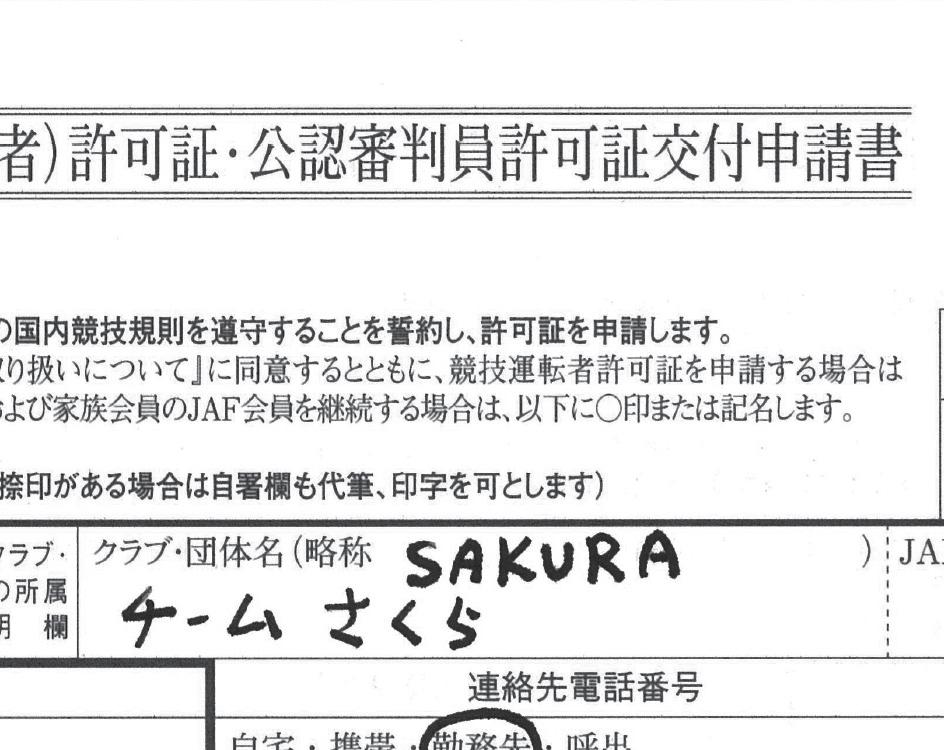 者)許可証・公認審判員許可証交付申請書
の国内競技規則を遵守することを誓約し、許可証を申請します。
取り扱いについて』に同意するとともに、競技運転者許可証を申請する場合は
および家族会員のJAF会員を継続する場合は、以下に○印または記名します。
捺印がある場合は自署欄も代筆、印字を可とします)
クラブ・
の所属
明 欄
クラブ・団体名(略称 SAKURA )
チーム さくら
JAF
連絡先電話番号
自宅・携帯・勤務先・呼出